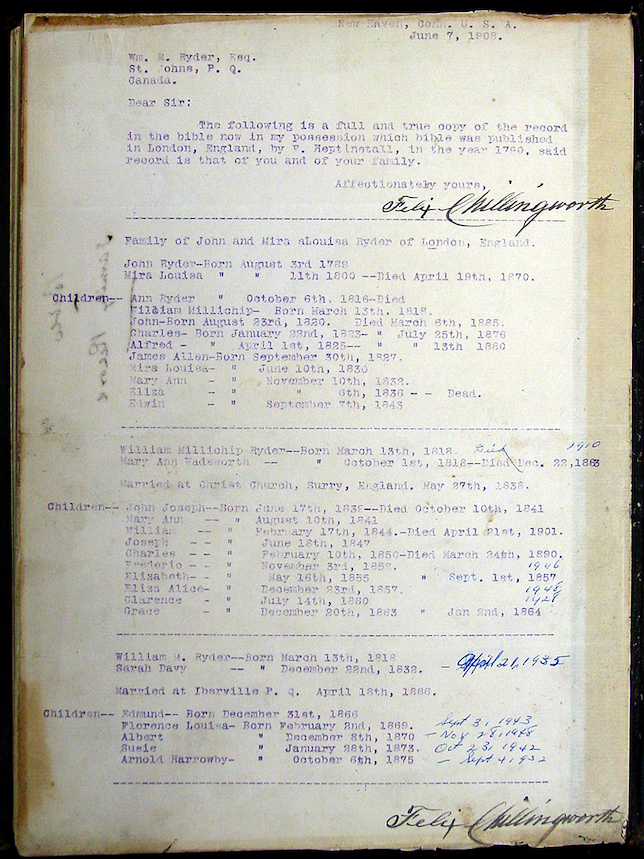 New Haven, Conn. U. S. A.
June 7, 1908.
Wm. M. Ryder, Esq.
St. Johns, P. Q.
Canada.
Dear Sir:
The following is a full and true copy of the record
in the bible now in my possession which bible was published
in London, England, by P. Heptinstall, in the year 1790. said
record is that of you and of your family.
Affectionately yours,
Felix Chillingworth
Family of John and Mira aLouisa Ryder of London, England.
John Ryder-Born August 3rd 1789
Mira Louisa " " 11th 1800 --Died April 19th, 1870.
Children-- Ann Ryder " October 6th, 1816-Died
William Millichip- Born March 13th. 1818.
John-Born August 23rd, 1820. Died March 6th, 1885.
Charles- Born January 22nd, 1823- " July 25th, 1876
Alfred - " April 1st, 1825-- " " 13th 1880
James Allen-Born September 30th, 1827.
Mira Louisa- " June 10th, 1830
Mary Ann - " November 10th, 1832.
Eliza - " " 6th, 1836 - - Dead.
Edwin - " September 7th, 1843
William Millichip Ryder--Born March 13th, 1818. Died 1910
Mary Ann Wadsworth -- " October 1st, 1818--Died Dec. 22,1863
Married at Christ Church, Surry, England. May 27th, 1838.
Children-- John Joseph--Born June 17th, 1839--Died October 10th, 1841
Mary Ann -- " August 10th, 1841
William -- " February 17th, 1844.-Died April 21st, 1901.
Joseph - - " June 18th, 1847
Charles - - " February 10th, 1850-Died March 24th, 1890.
Frederic - - " November 3rd, 1852. 1946
Elizabeth- - " May 16th, 1855 " Sept. 1st, 1857
Eliza Alice- " December 23rd, 1857.
Clarence - " July 14th, 1860 1928
Grace - " December 20th, 1863 " Jan 2nd, 1864
William M. Ryder--Born March 13th, 1818
Sarah Davy -- " December 22nd, 1832. - April 21, 1935
Married at Iberville P. Q. April 18th, 1866.
Children-- Edmund-- Born December 31st, 1866
Florence Louisa- Born February 2nd, 1869. Sept 3, 1943
Albert " December 8th, 1870 - Nov 28, 1948
Susie " January 28th, 1873. Oct 23, 1942
Arnold Harrowby- " October 6th, 1875 - Sept 4, 1932
Felix Chillingworth